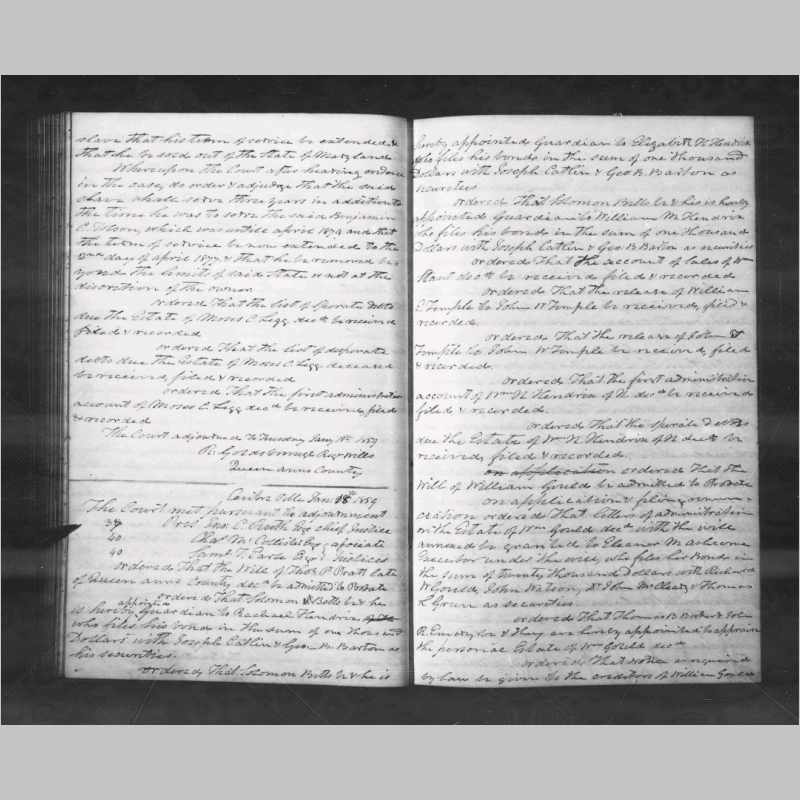 slave that his term of service be extended &
that he be sold out of the State of Maryland
Whereupon the Court after hearing evidence
in the case, do order & adjudge that the said
slave shall serve three years in addition to
the time he was to serve the said Benjamin
C. which was untill april 1874 and that
the term of service be now extended to the
day of april 1877 & that he be removed be
yond the limits of said State or not at the
discretion of the owner
ordered that the list of Sperate debts
due the Estate of Moses C. Legg decd. be received
filed & recorded
ordered that the list of desperate
debts due the Estate of Moses C. Legg deceased
be received, filed & recorded
ordered that the first administration
account of Moses C. Legg decd. be received, filed
& recorded
The Court adjourned to Tuesday Jany 18th 1859
R. Goldsborough Regr Wills
Queen Anns County
Centre Ville Jan. 18th 1859
The Court met pursuant to adjournment
39 Pres. C. Ruth Esq chief Justice
40 Esq. asociate
40 Saml. T. Earle Esqr. Justices
ordered that the Will of Thos. P. Pratt late
of Queen anns County, decd. be admitted to Probate
ordered that Solomon Betts be & he
is hereby appointed guardian to Rachael Hendrix
who files his bond in the sum of one thousand
Dollars with Joseph Catlin & Geo. B. Barton as
his securities.
ordered, that Solomon Betts be & he is
hereby appointed Guardian to Elizabeth N. Hendrix
he files his bonds in the sum of one thousand
Dollars with Joseph Catlin & Geo. B. Barton as
securities
ordered that Solomon Betts be & he is hereby
appointed Guardian to William M. Hendrix
he files his bond in the sum of one thousand
Dollars with Joseph Catlin & Geo B Barton as securities
ordered that the account of sales of Wm
decd. be received filed & recorded
ordered that the release of William
E Temple to John W Temple be received, filed &
recorded.
ordered that the release of
Temple to John W Temple be received, filed
& recorded.
ordered that the first administration
account of Wm N Hendrix of N decd. be received
filed & recorded.
ordered that the sperate Debts
due the Estate of Wm N Hendrix of N decd. be
received, filed & recorded.
on application ordered that the
Will of William Gould be admitted to Probate
on application & filing renun-
ciation ordered that letters of administration
on the Estate of Wm Gould decd. with the will
annexed be granted to Eleanor M.
Executor under the will, who files his Bond in
the sum of twenty thousand Dollars with Richard
W Gould, John Watson, & Thomas
as securities
ordered that Thomas B. & John
R. Emory, be & they are hereby appointed to appraise
the personal Estate of Wm Gould decd.
ordered that notice as required
by law be given to the creditors of William Gould